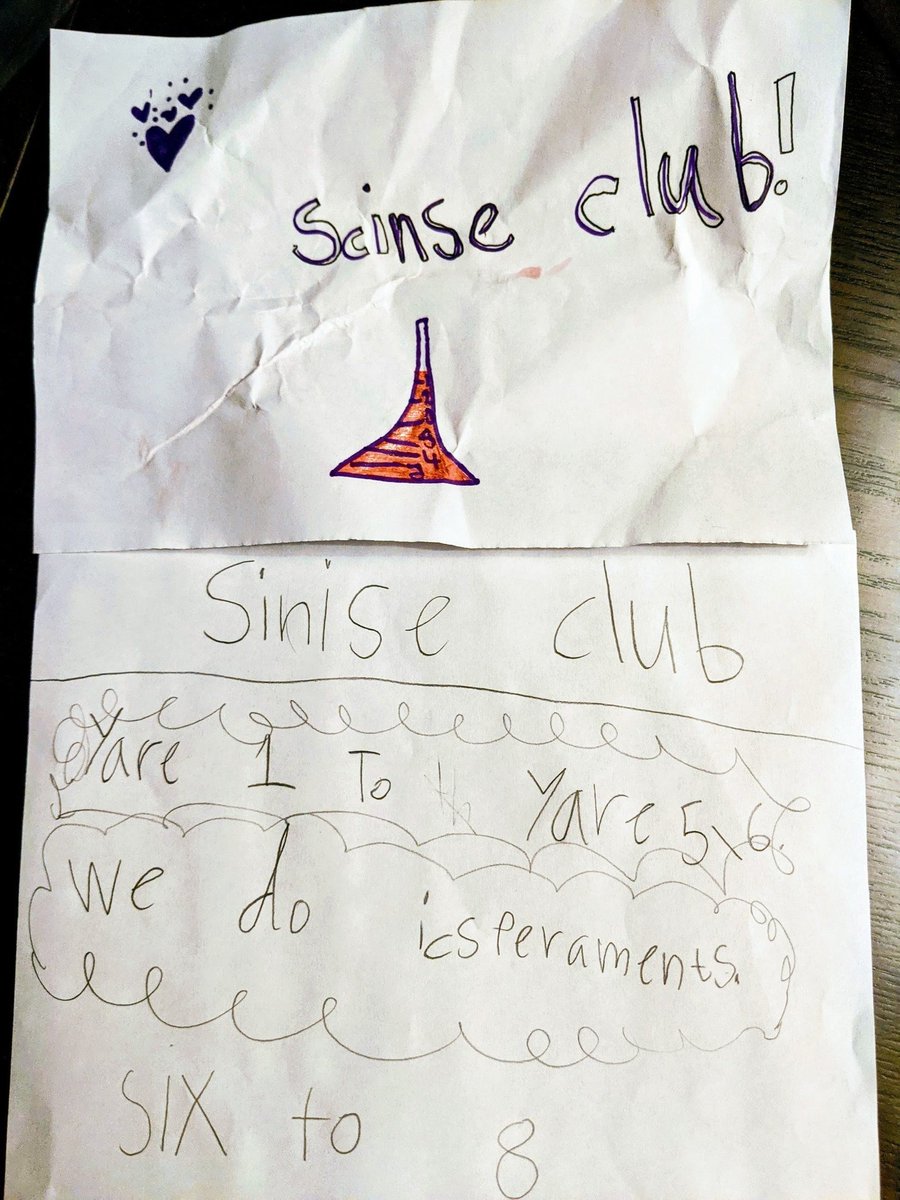 Scinse club!
Sinise club
Yare 1 To Yare 5x6.
We do icsperaments.
SIX to 8